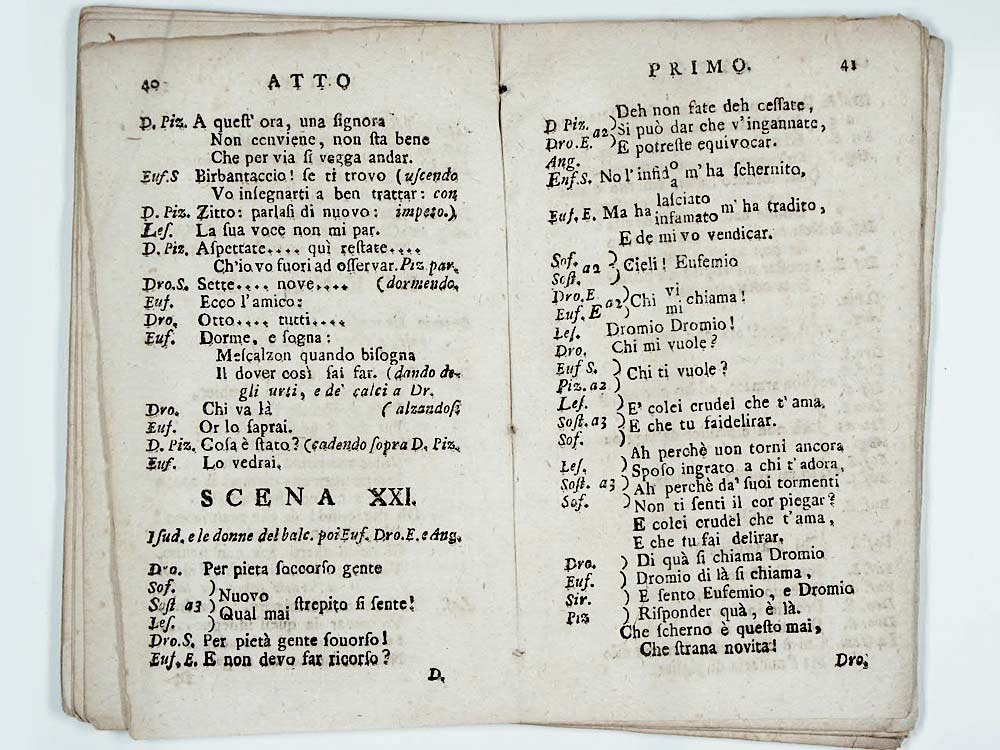 40 ATTO
D. Piz. A quest' ora, una signora
Non cenviene, non sta bene
Che per via si vegga andar.
Euf.S Birbantaccio! se ti trovo (uscendo
Vo insegnarti a ben trattar: con
D. Piz. Zitto: parlasi di nuovo: impeto.)
Les. La sua voce non mi par.
D. Piz. Aspettate.... quì restate....
Ch'io vo fuori ad osservar. Piz par.
Dro.S. Sette.... nove.... (dormendo.
Euf. Ecco l'amico:
Dro. Otto.... tutti....
Euf. Dorme, e sogna:
Mescalzon quando bisogna
Il dover così sai far. (dando de-
gli urti, e de' calci a Dr.
Dro. Chi va là (alzandosi
Euf. Or lo saprai.
D. Piz. Cosa è stato? (cadendo sopra D. Piz.
Euf. Lo vedrai.
SCENA XXI.
I sud. e le donne del balc. poi Euf. Dro.E. e Ang.
Dro. Per pieta soccorso gente
Sof. )
Sost a3 ) Nuovo
Les. ) Qual mai strepito si sente!
Dro.S. Per pietà gente sovorso!
Euf. E. E non devo far ricorso?
D.
PRIMO. 41
Deh non fate deh cessate,
D Piz. a2 ) Si può dar che v'ingannate,
Dro.E. ) E potreste equivocar.
Ang.
Enf.S. No l'infid o a m'ha schernito,
Euf. E. Ma ha lasciato infamato m'ha tradito,
E de mi vo vendicar.
Sof. a2 ) Cieli! Eufemio
Sost. )
Dro.E a2 ) Chi vi mi chiama!
Euf. E
Les. Dromio Dromio!
Dro. Chi mi vuole?
Euf S ) Chi ti vuole?
Piz. a2 )
Les. ) E' colei crudel che t'ama.
Sost. a3 ) E che tu faidelirar.
Sof. )
Ah perchè uon torni ancora
Les. ) Sposo ingrato a chi t'adora,
Sost. a3 ) Ah perchè da' suoi tormenti
Sof. ) Non ti senti il cor piegar?
E colei crudel che t'ama,
E che tu fai delirar.
Dro. ) Di quà si chiama Dromio
Euf. ) Dromio di là si chiama,
Sir. ) E sento Eufemio, e Dromio
Piz ) Risponder quà, è là.
Che scherno è questo mai,
Che strana novita!
Dro.